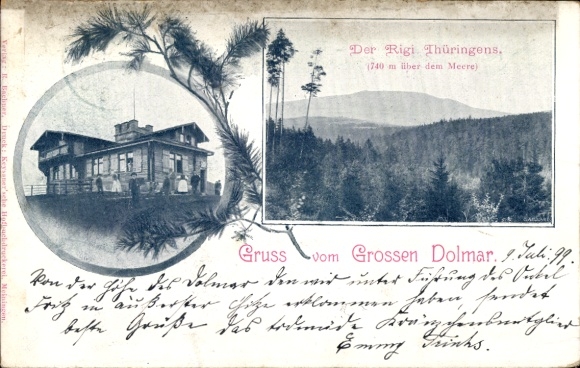 Der Rigi Thüringens,
(740 m über dem Meere)
Gruss vom Grossen Dolmar.
9. Juli. 99
Von der Höhe des Dolmar den wir unter Führung des Onkel
Fritz in äußerster Hitze erklommen haben, sendet
beste Grüße das todmüde Kränzchensmitglied
Emmy Trinks.
Verlag: B. Druck: Keyssner'sche Hofbuchdruckerei, Meiningen.